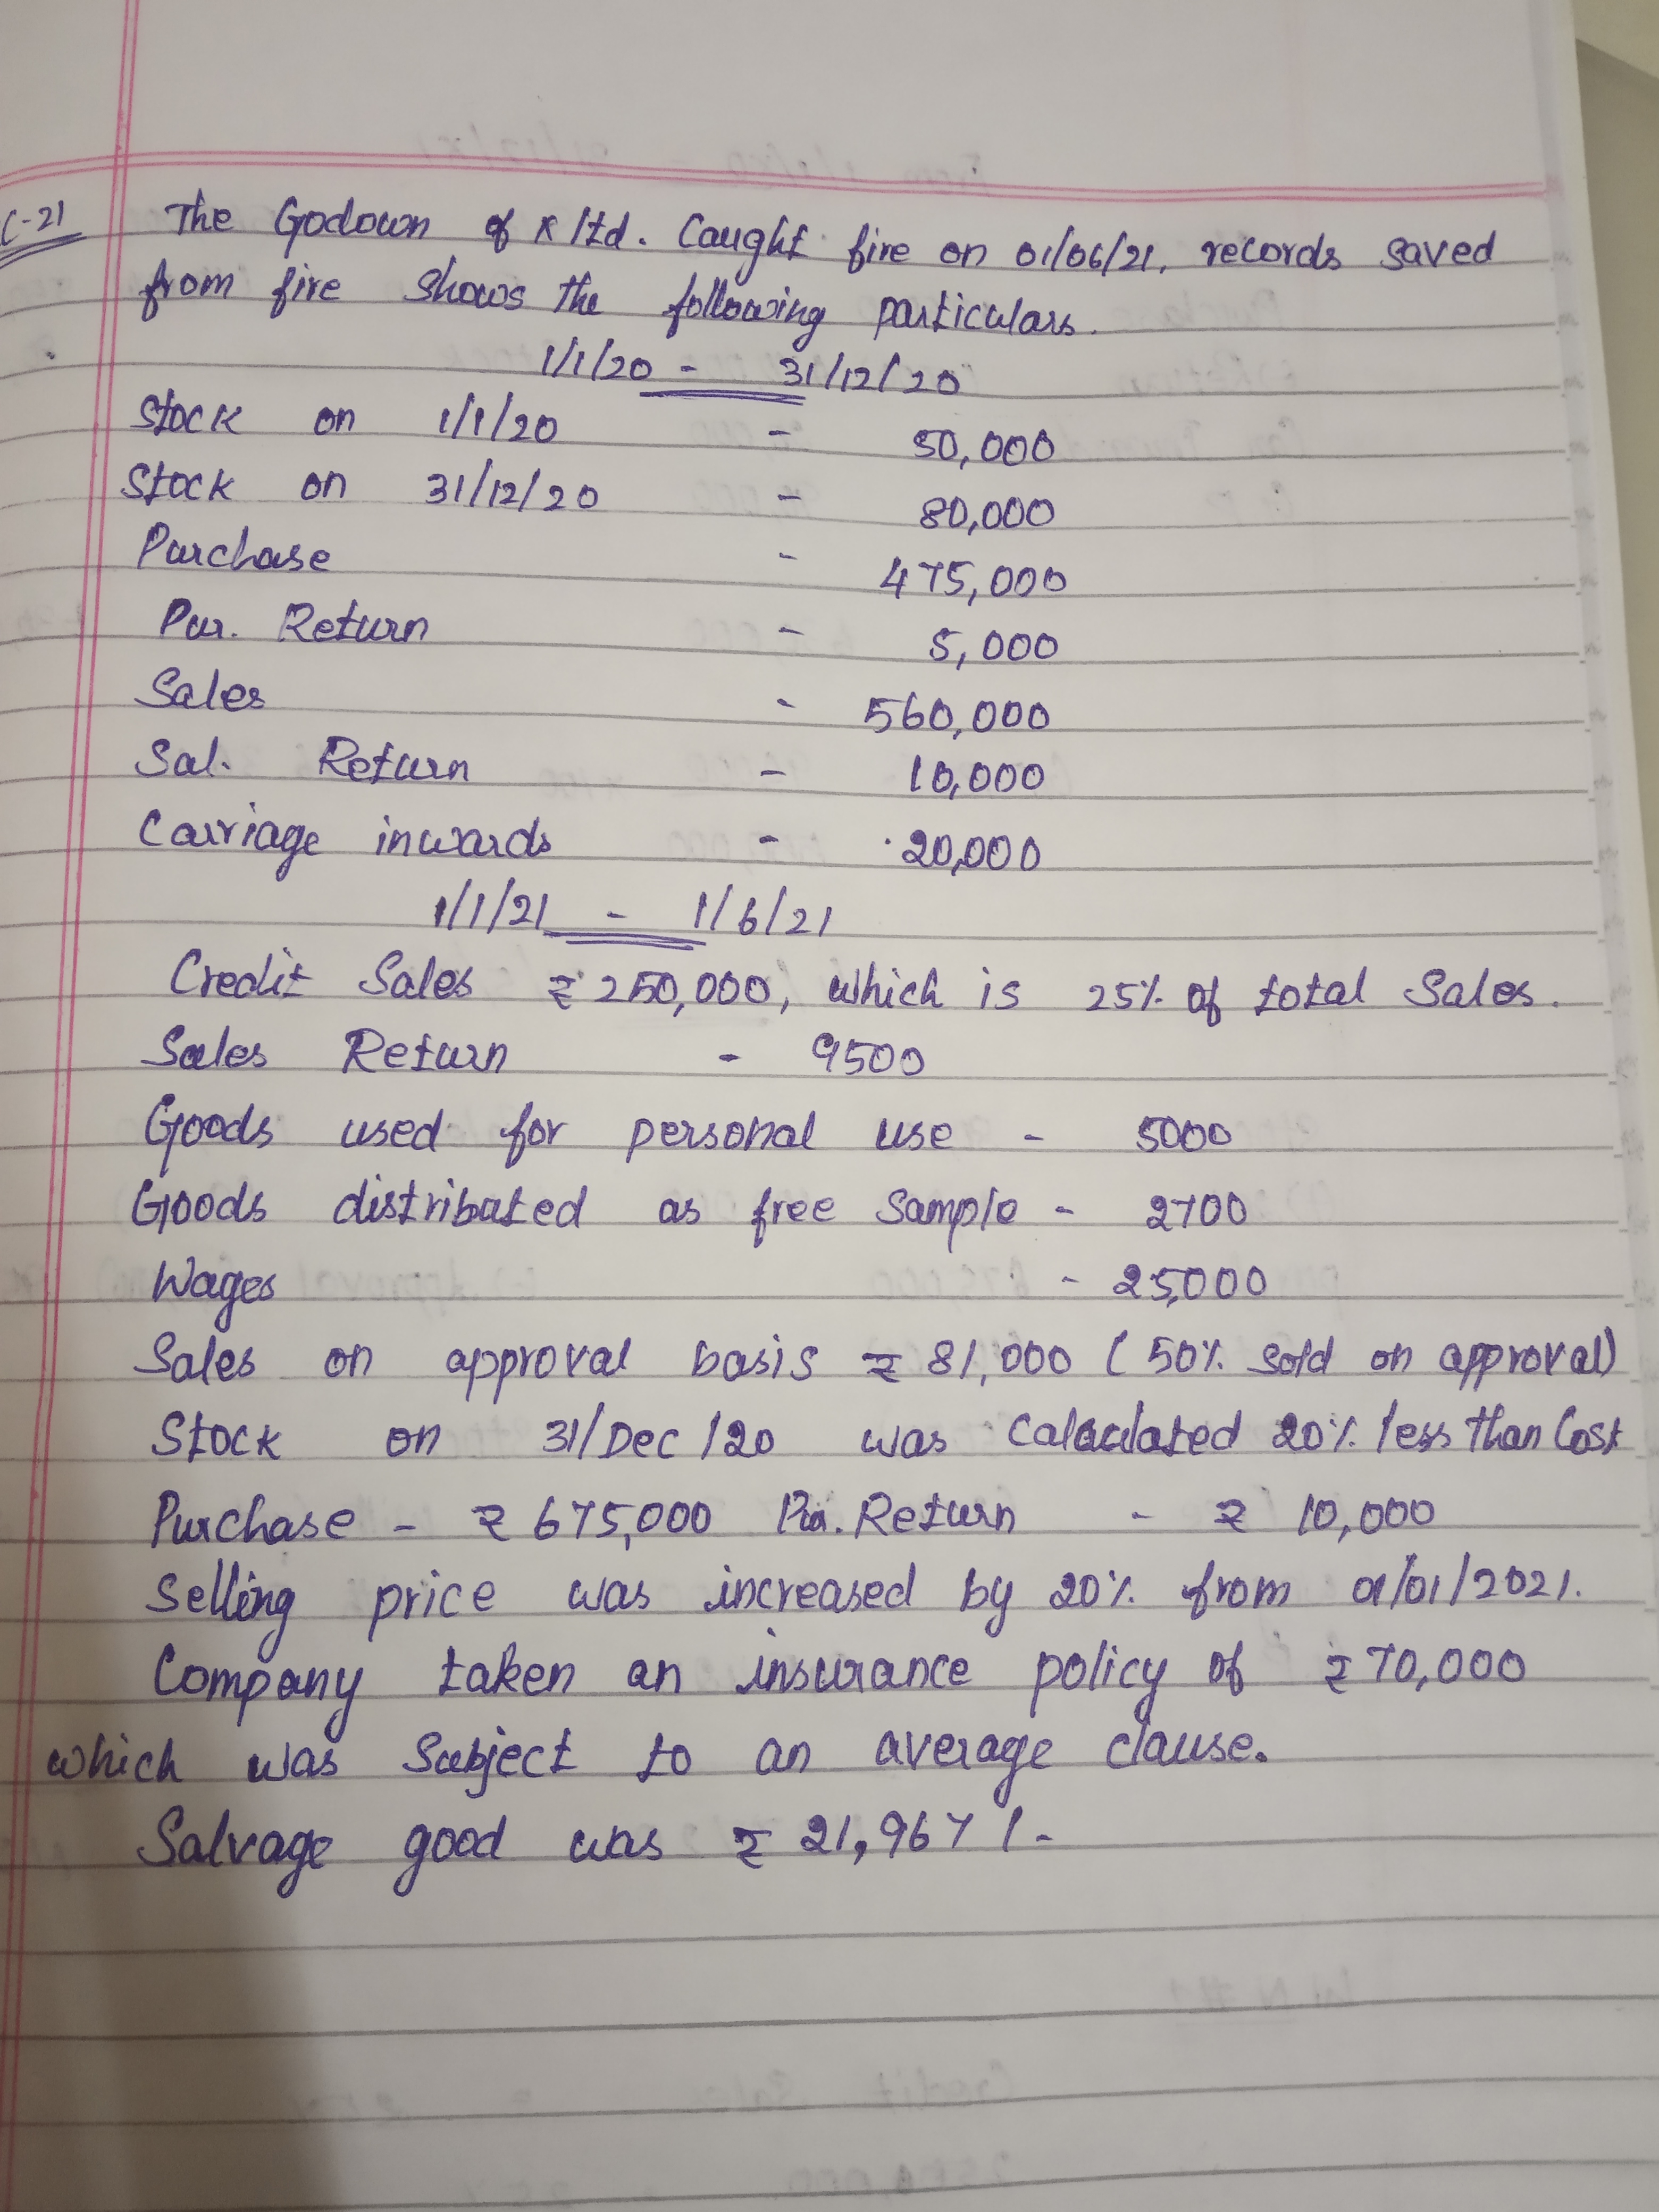 C-21 The Godown of X ltd. Caught fire on 01/06/21, records saved
from fire shows the following particulars.
1/1/20 - 31/12/20
Stock on 1/1/20 - 50,000
Stock on 31/12/20 - 80,000
Purchase - 475,000
Pur. Return - 5,000
Sales - 560,000
Sal. Return - 10,000
Carriage inwards - 20,000
1/1/21 - 1/6/21
Credit Sales ₹ 250,000, which is 25% of total Sales.
Sales Return - 9500
Goods used for personal use - 5000
Goods distributed as free Sample - 2700
Wages - 25,000
Sales on approval basis ₹ 81,000 (50% Sold on approval)
Stock on 31/Dec/20 was Calculated 20% less than Cost
Purchase - ₹ 675,000 Pur. Return - ₹ 10,000
Selling price was increased by 20% from 01/01/2021.
Company taken an insurance policy of ₹ 70,000
which was Subject to an average clause.
Salvage good was ₹ 21,967/-